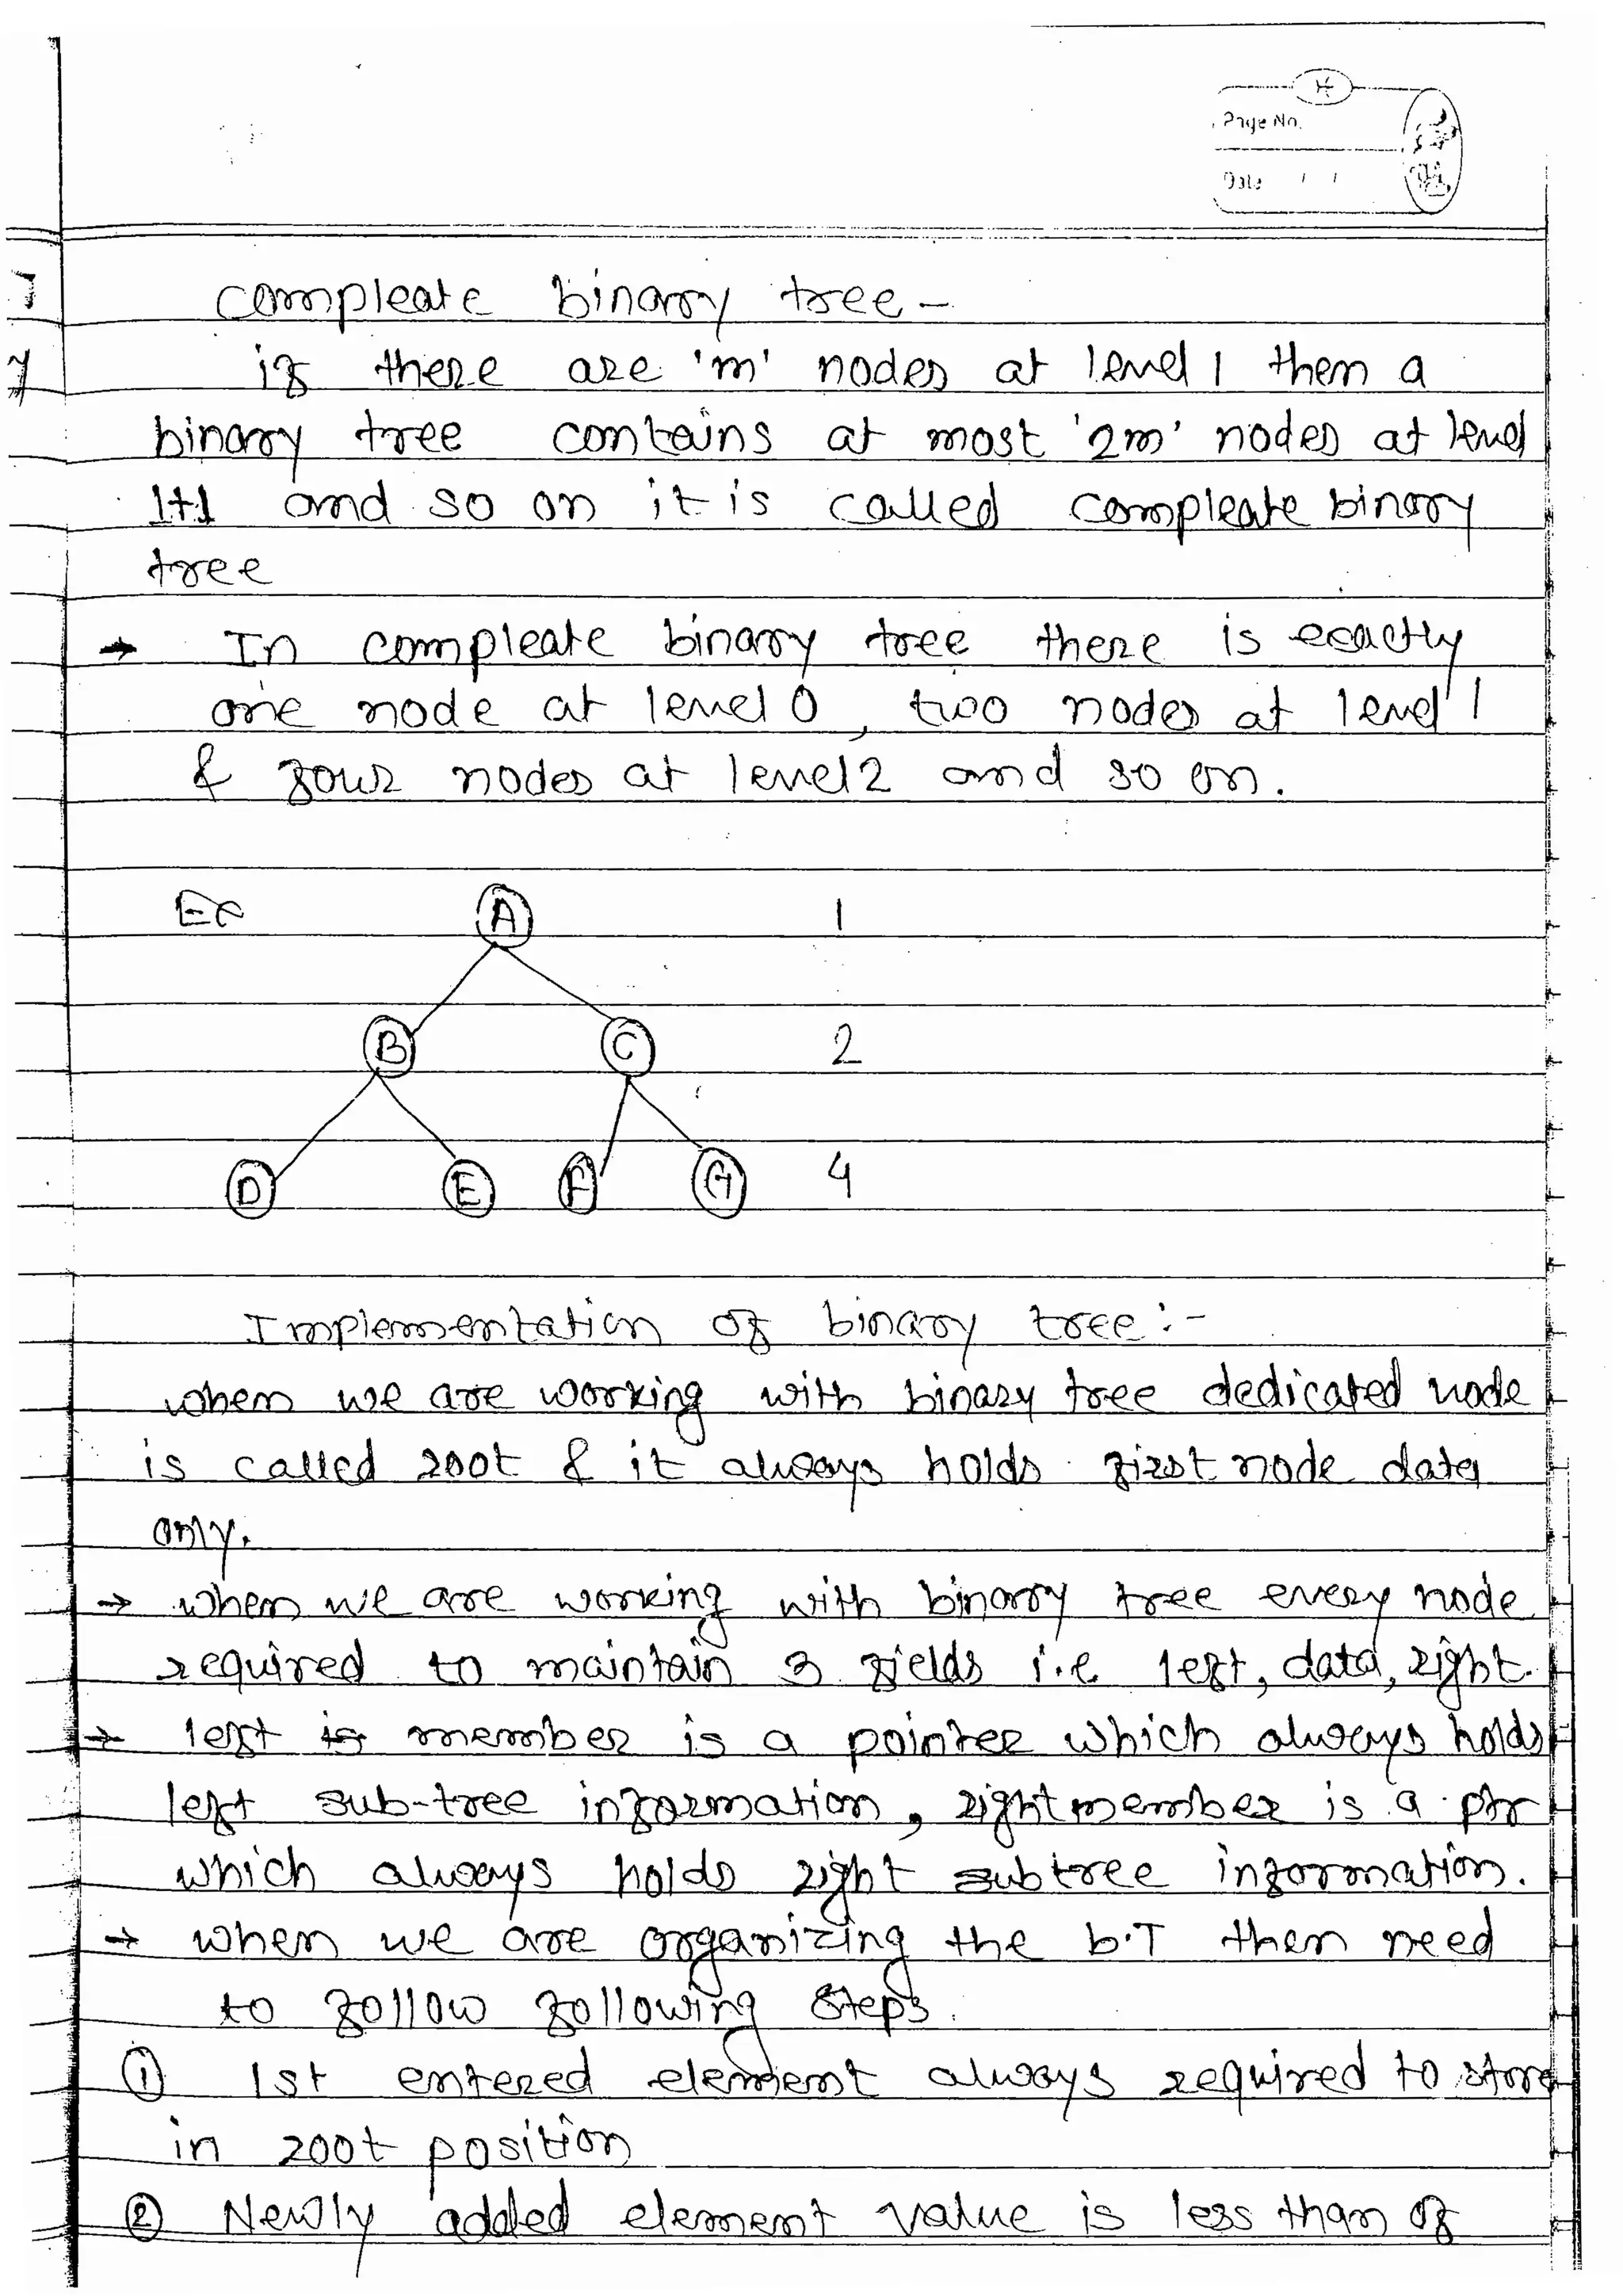 Page No.
Date / /
compleate binary tree -
if there are 'm' nodes at level 1 then a
binary tree contains at most '2m' nodes at level
1+1 and so on it is called compleate binary
tree
→ In compleate binary tree there is exactly
one node at level 0, two nodes at level 1
& four nodes at level 2 and so on.
Ex A 1
B C 2
D E F G 4
Implementation of binary tree :-
when we are working with binary tree dedicated node
is called root & it always holds first node data
only.
→ when we are working with binary tree every node
required to maintain 3 fields i.e left, data, right.
→ left is member is a pointer which always holds
left sub-tree information, right member is a ptr
which always holds right subtree information.
→ when we are organizing the b.T then need
to follow following steps.
① 1st entered element always required to store
in root position
② Newly added element value is less than of